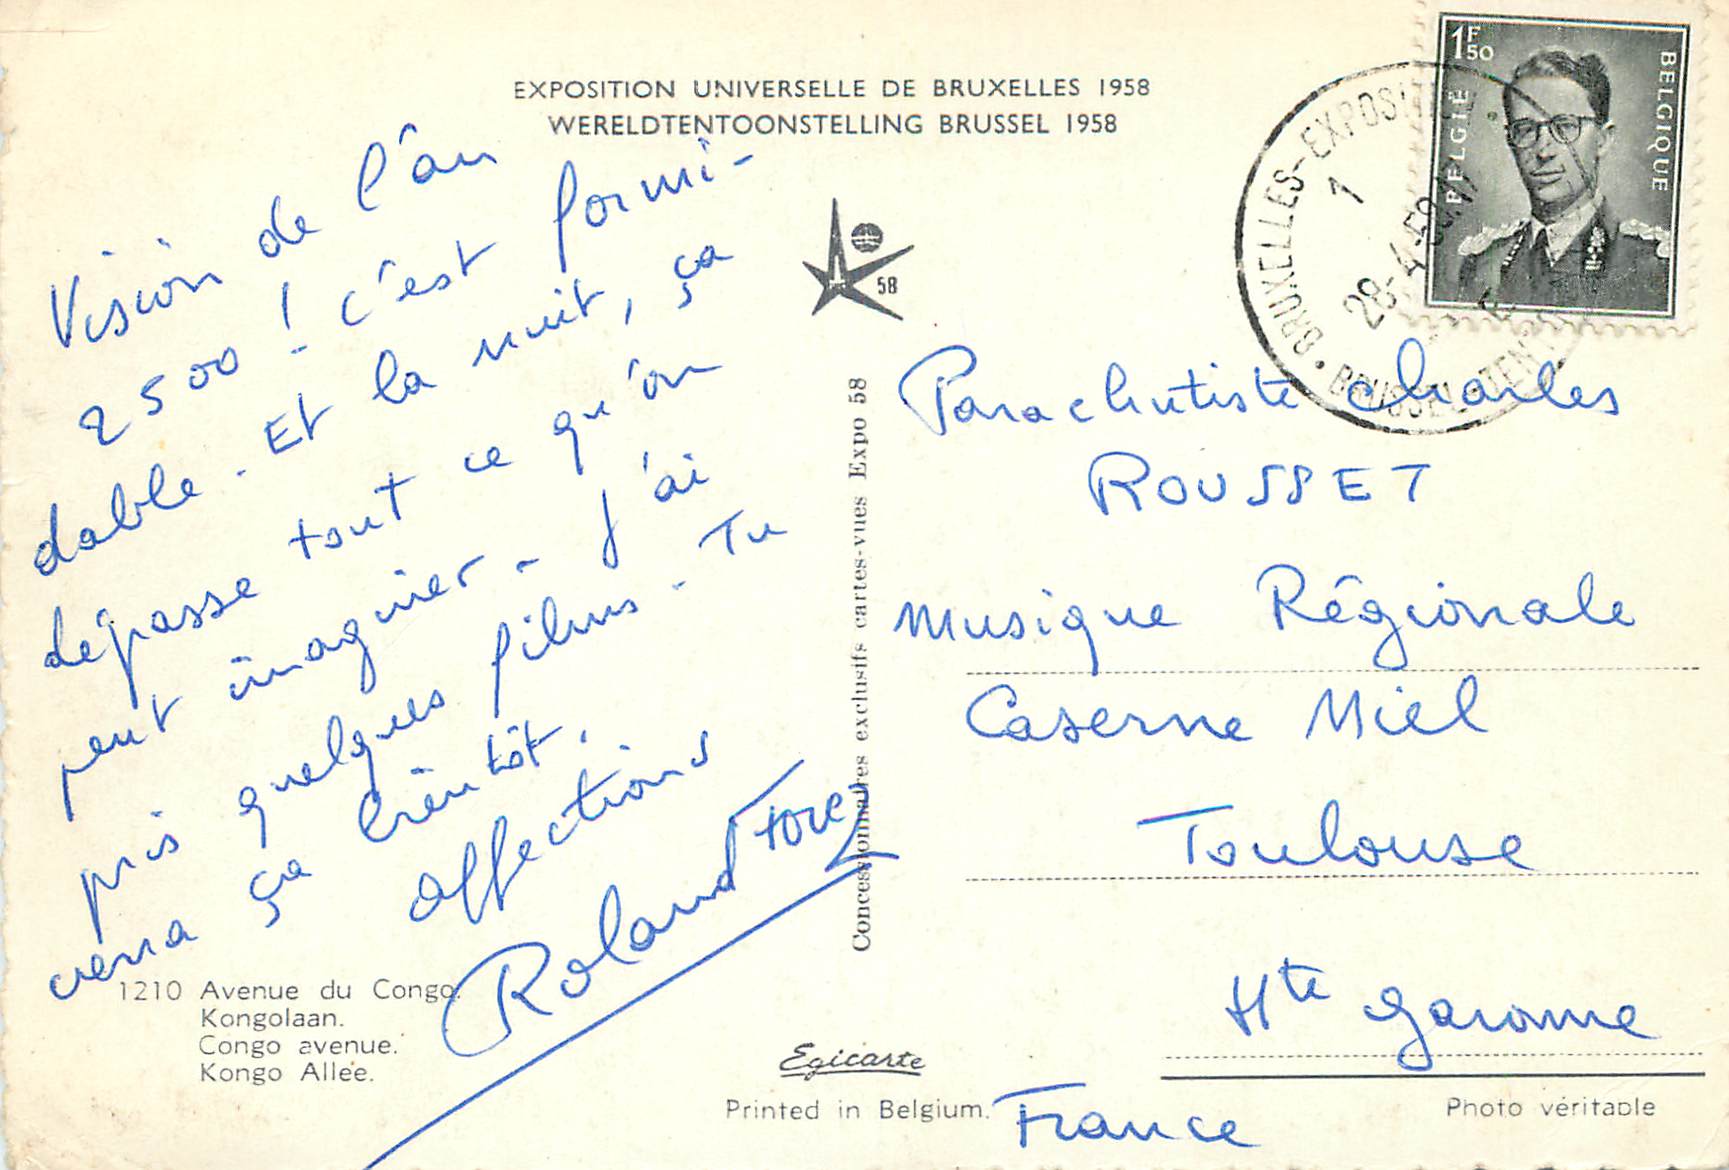 EXPOSITION UNIVERSELLE DE BRUXELLES 1958
WERELDTENTOONSTELLING BRUSSEL 1958
Vision de l'an
2500 ! C'est formi-
dable. Et la nuit, ça
dépasse tout ce qu'on
peut imaginer - J'ai
pris quelques films. Tu
verra ça bientôt,
affections
Roland Forez
1210 Avenue du Congo.
Kongolaan.
Congo avenue.
Kongo Allee.
58
Concessionnaires exclusifs cartes-vues Expo 58
Egicarte
Printed in Belgium.
1F50
BELGIE
BELGIQUE
BRUXELLES-EXPOSIT
1
28-4-58
BRUSSEL-TENTO
Parachutiste Charles
ROUSSET
Musique Régionale
Caserne Niel
Toulouse
Hte Garonne
France
Photo véritable